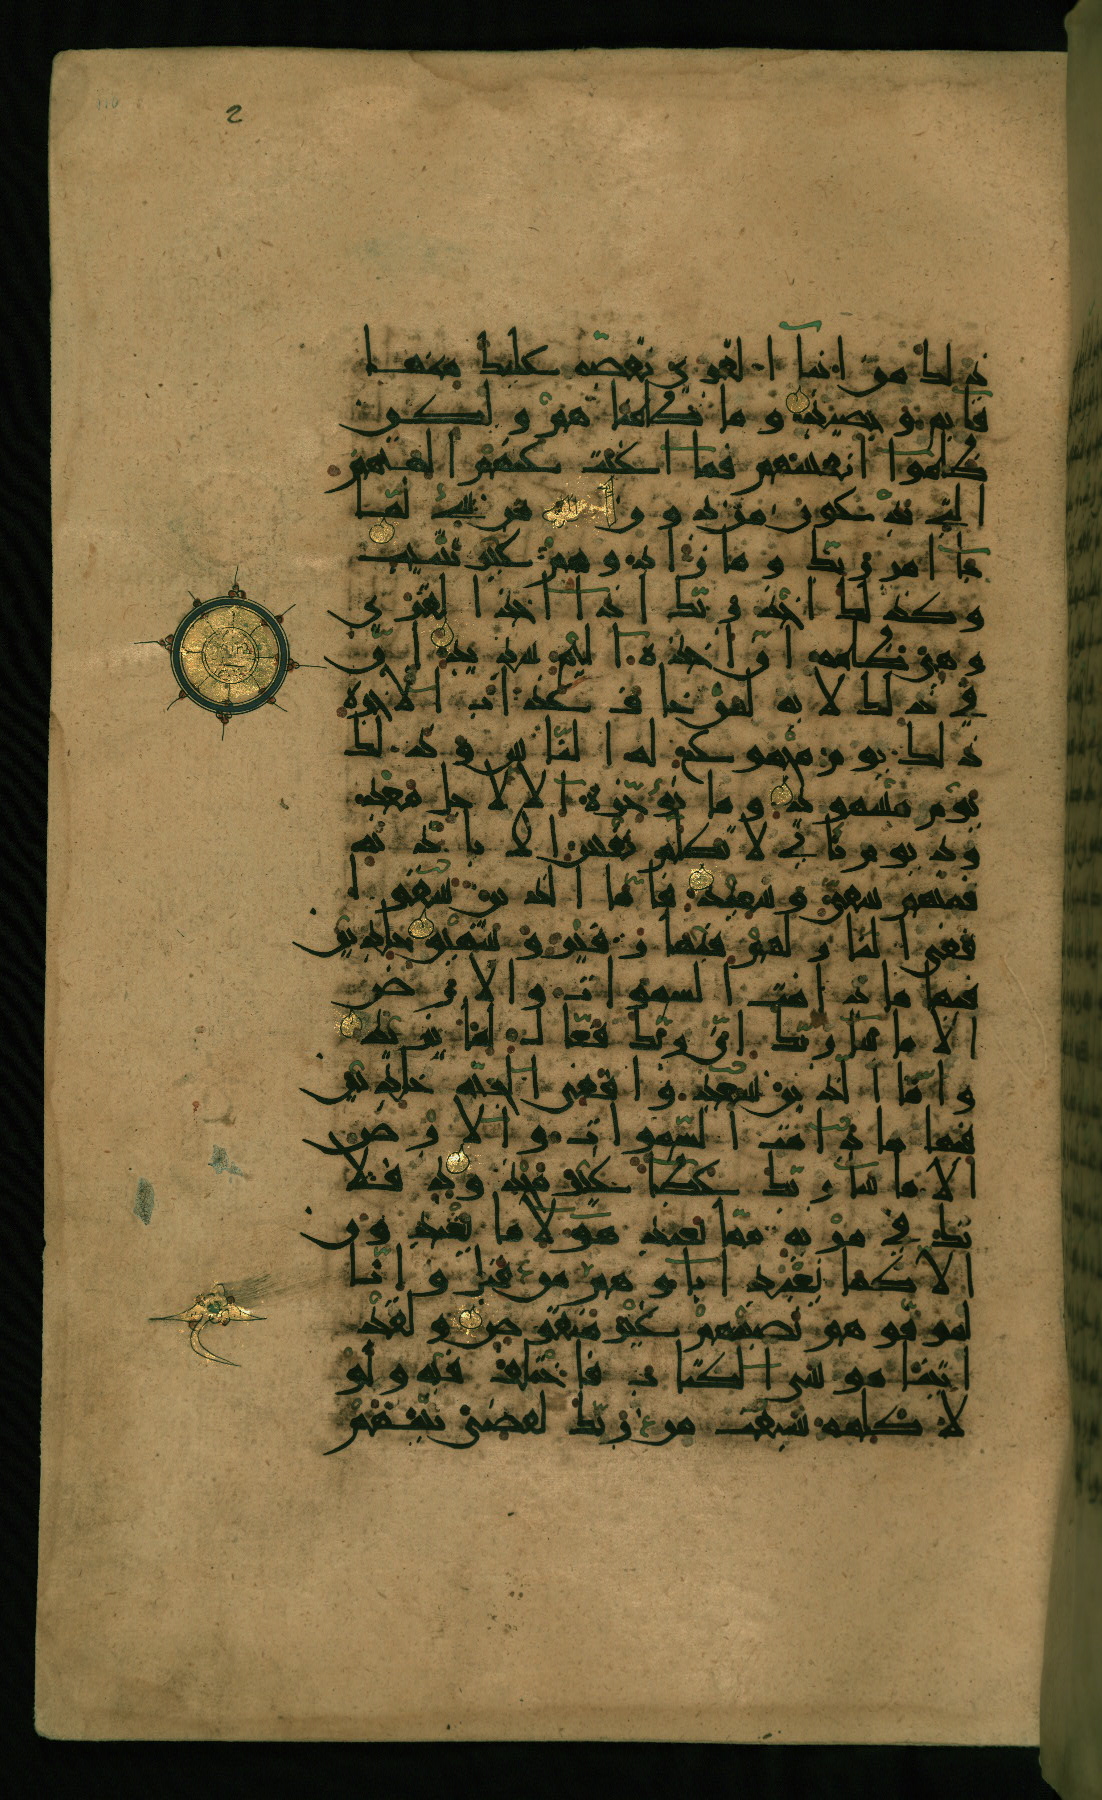 2
ذلك من انبآ القرى نقصه عليك منها
قايم وحصيد وما ظلمناهم ولكن
ظلموا انفسهم فما اغنت عنهم الهتهم
التي يدعون من دون الله من شيء لما
جآ امر ربك وما زادوهم غير تتبيب
وكذلك اخذ ربك اذا اخذ القرى
وهي ظالمة ان اخذه اليم شديد ان
في ذلك لاية لمن خاف عذاب الاخرة
ذلك يوم مجموع له الناس وذلك
يوم مشهود وما نؤخره الا لاجل معد
ود يوم ياتي لا تكلم نفس الا باذنه
فمنهم شقي وسعيد فاما الذين شقوا
ففي النار لهم فيها زفير وشهيق خالدين
فيها ما دامت السموات والارض
الا ما شآ ربك ان ربك فعال لما يريد
واما الذين سعدوا ففي الجنة خالدين
فيها ما دامت السموات والارض
الا ما شآ ربك عطآ غير مجذوذ فلا
تك في مرية مما يعبد هولا ما يعبدون
الا كما يعبد اباوهم من قبل وانا
لموفوهم نصيبهم غير منقوص ولقد
اتينا موسى الكتاب فاختلف فيه ولو
لا كلمة سبقت من ربك لقضي بينهم